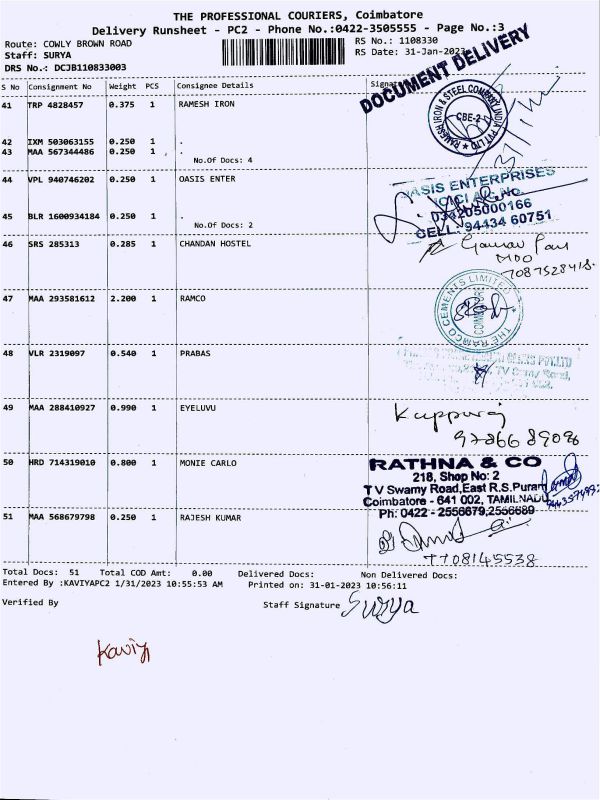 THE PROFESSIONAL COURIERS, Coimbatore
Delivery Runsheet - PC2 - Phone No.:0422-3505555 - Page No.:3
Route: COWLY BROWN ROAD
RS No.: 1108330
Staff: SURYA
RS Date: 31-Jan-2023
DRS No.: DCJB110833003
DOCUMENT DELIVERY
S No Consignment No Weight PCS Consignee Details
41 TRP 4828457 0.375 1 RAMESH IRON
RAMESH IRON & STEEL COMPANY INDIA PVT LTD
CBE-2
42 IXM 503063155 0.250 1 .
43 MAA 567344486 0.250 1 .
No.Of Docs: 4
44 VPL 940746202 0.250 1 OASIS ENTER
OASIS ENTERPRISES
ICICI A/C No.
034205000166
CELL: 94434 60751
45 BLR 1600934184 0.250 1 .
No.Of Docs: 2
46 SRS 285313 0.285 1 CHANDAN HOSTEL
47 MAA 293581612 2.200 1 RAMCO
THE RAMCO CEMENTS LIMITED
COIMBATORE
48 VLR 2319097 0.540 1 PRABAS
49 MAA 288410927 0.990 1 EYELUVU
Kuppuraj
50 HRD 714319010 0.800 1 MONIE CARLO
RATHNA & CO
218, Shop No: 2
T V Swamy Road,East R.S.Puram
Coimbatore - 641 002, TAMILNADU
Ph: 0422 - 2556679,2556689
51 MAA 568679798 0.250 1 RAJESH KUMAR
7708145538
Total Docs: 51 Total COD Amt: 0.00 Delivered Docs: Non Delivered Docs:
Entered By :KAVIYAPC2 1/31/2023 10:55:53 AM Printed on: 31-01-2023 10:56:11
Verified By Staff Signature Surya
Kaviya